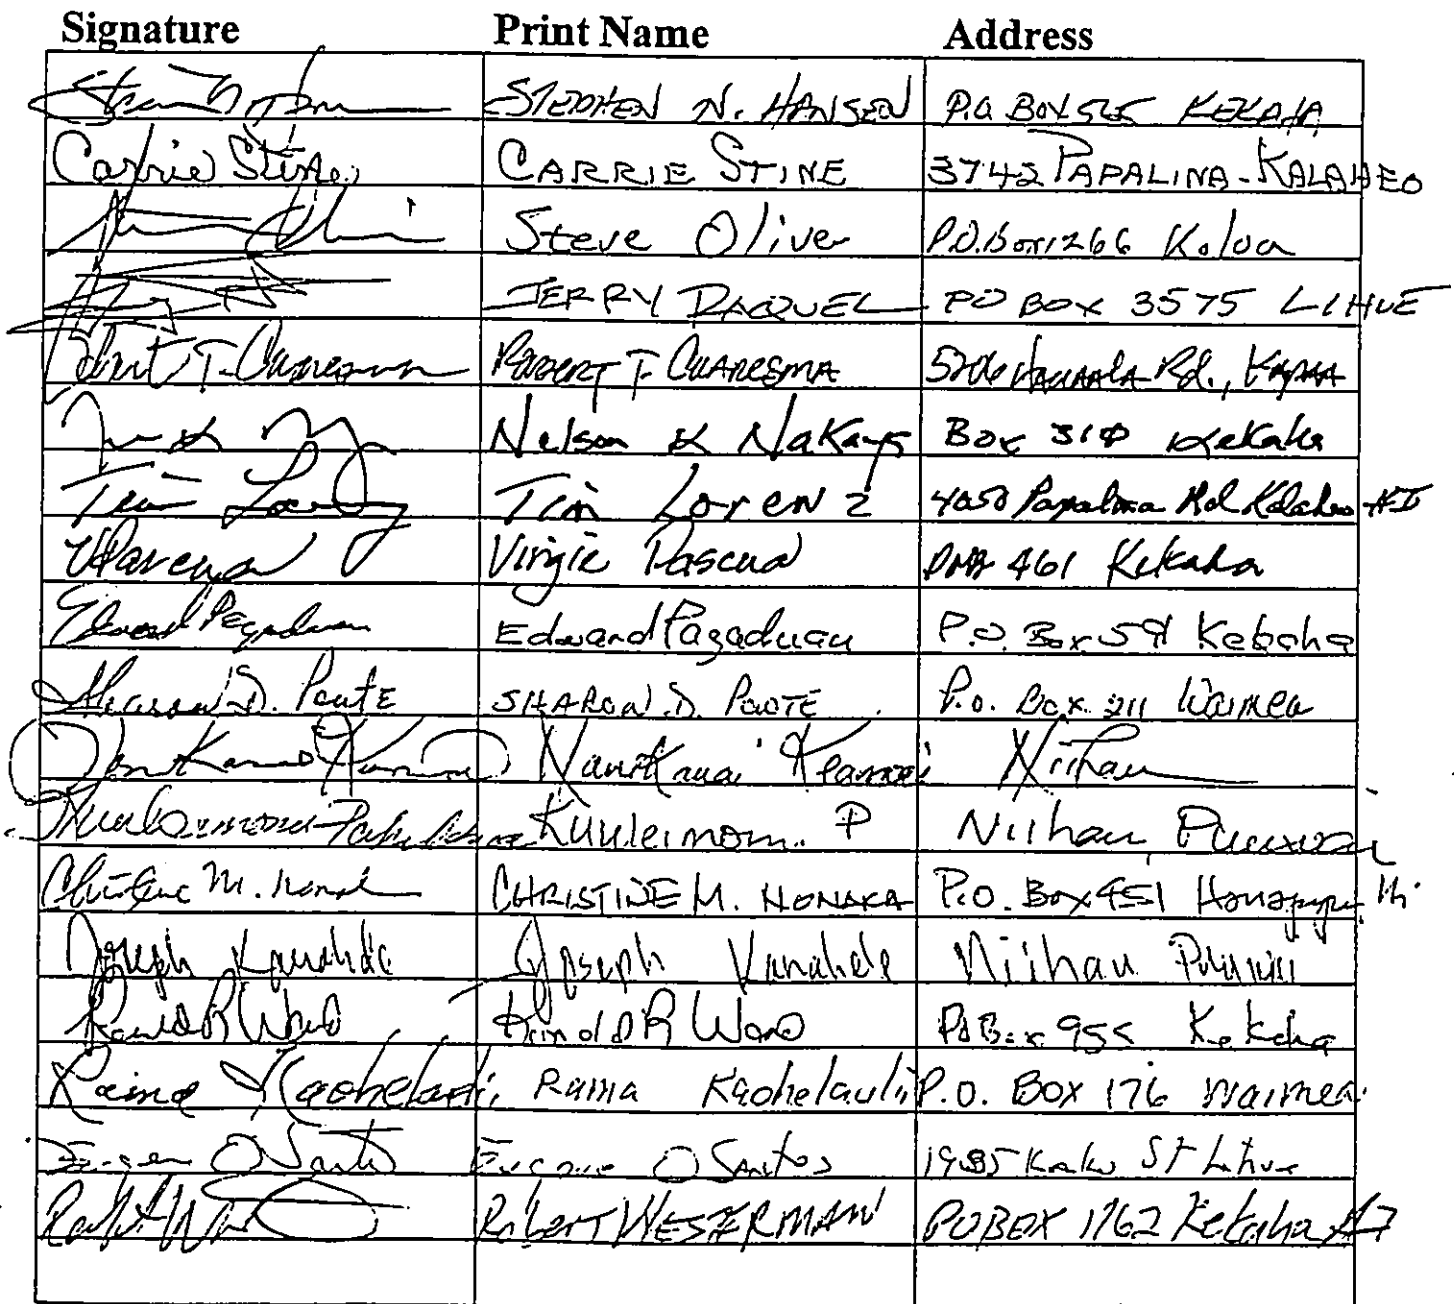 Signature Print Name Address
STEPHEN N. HANSEN P.O. BOX 565 KEKAHA
Carrie Stine CARRIE STINE 3742 PAPALINA - KALAHEO
Steve Olive P.O. Box 1266 Koloa
JERRY DACQUEL PO BOX 3575 LIHUE
Robert T. Cuaresma ROBERT T. CUARESMA Rd., KAPAA
Nelson K Box 310 Kekaha
Tim Lorenz Tim Lorenz 4050 Papalina Rd Kalaheo HI
Virgie Pascua 461 Kekaha
Edward Pagaduan Edward Pagaduan P.O. Box Kekaha
Sharon D. Poute SHARON D. POUTE P.O. Box 211 Waimea
Niihau
Kuuleimomi P Niihau Puuwai
Christine M. CHRISTINE M. NONAKA P.O. Box 451 Hanapepe Hi
Joseph Kanahele Joseph Kanahele Niihau Puuwai
Ronald R Ward Ronald R Ward PO Box 955 Kekaha
Raina Kaohelaulii Raina Kaohelaulii P.O. BOX 176 Waimea
Eugene O Santos Eugene O Santos 1985 St Lihue
Robert WESTERMAN PO BOX 1762 Kekaha HI